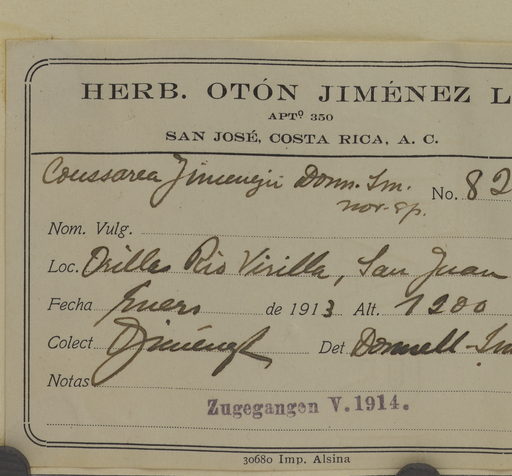 HERB. OTÓN JIMÉNEZ L
APTº 350
SAN JOSÉ, COSTA RICA, A. C.
Coussarea Jimenezii Donn. Sm. No. 82
nov. sp.
Nom. Vulg.
Loc. Orillas Rio Virilla, San Juan
Fecha Enero de 1913 Alt. 1200
Colect Jiménez Det Donnell-Sm
Notas
Zugegangen V. 1914.
30680 Imp. Alsina